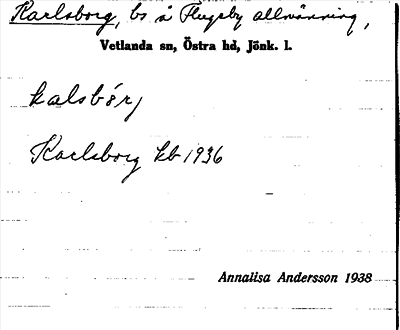 Karlsborg, bs å Flugeby allmänning,
Vetlanda sn, Östra hd, Jönk. l.
kalsbórj
Karlsborg kb 1936
Annalisa Andersson 1938